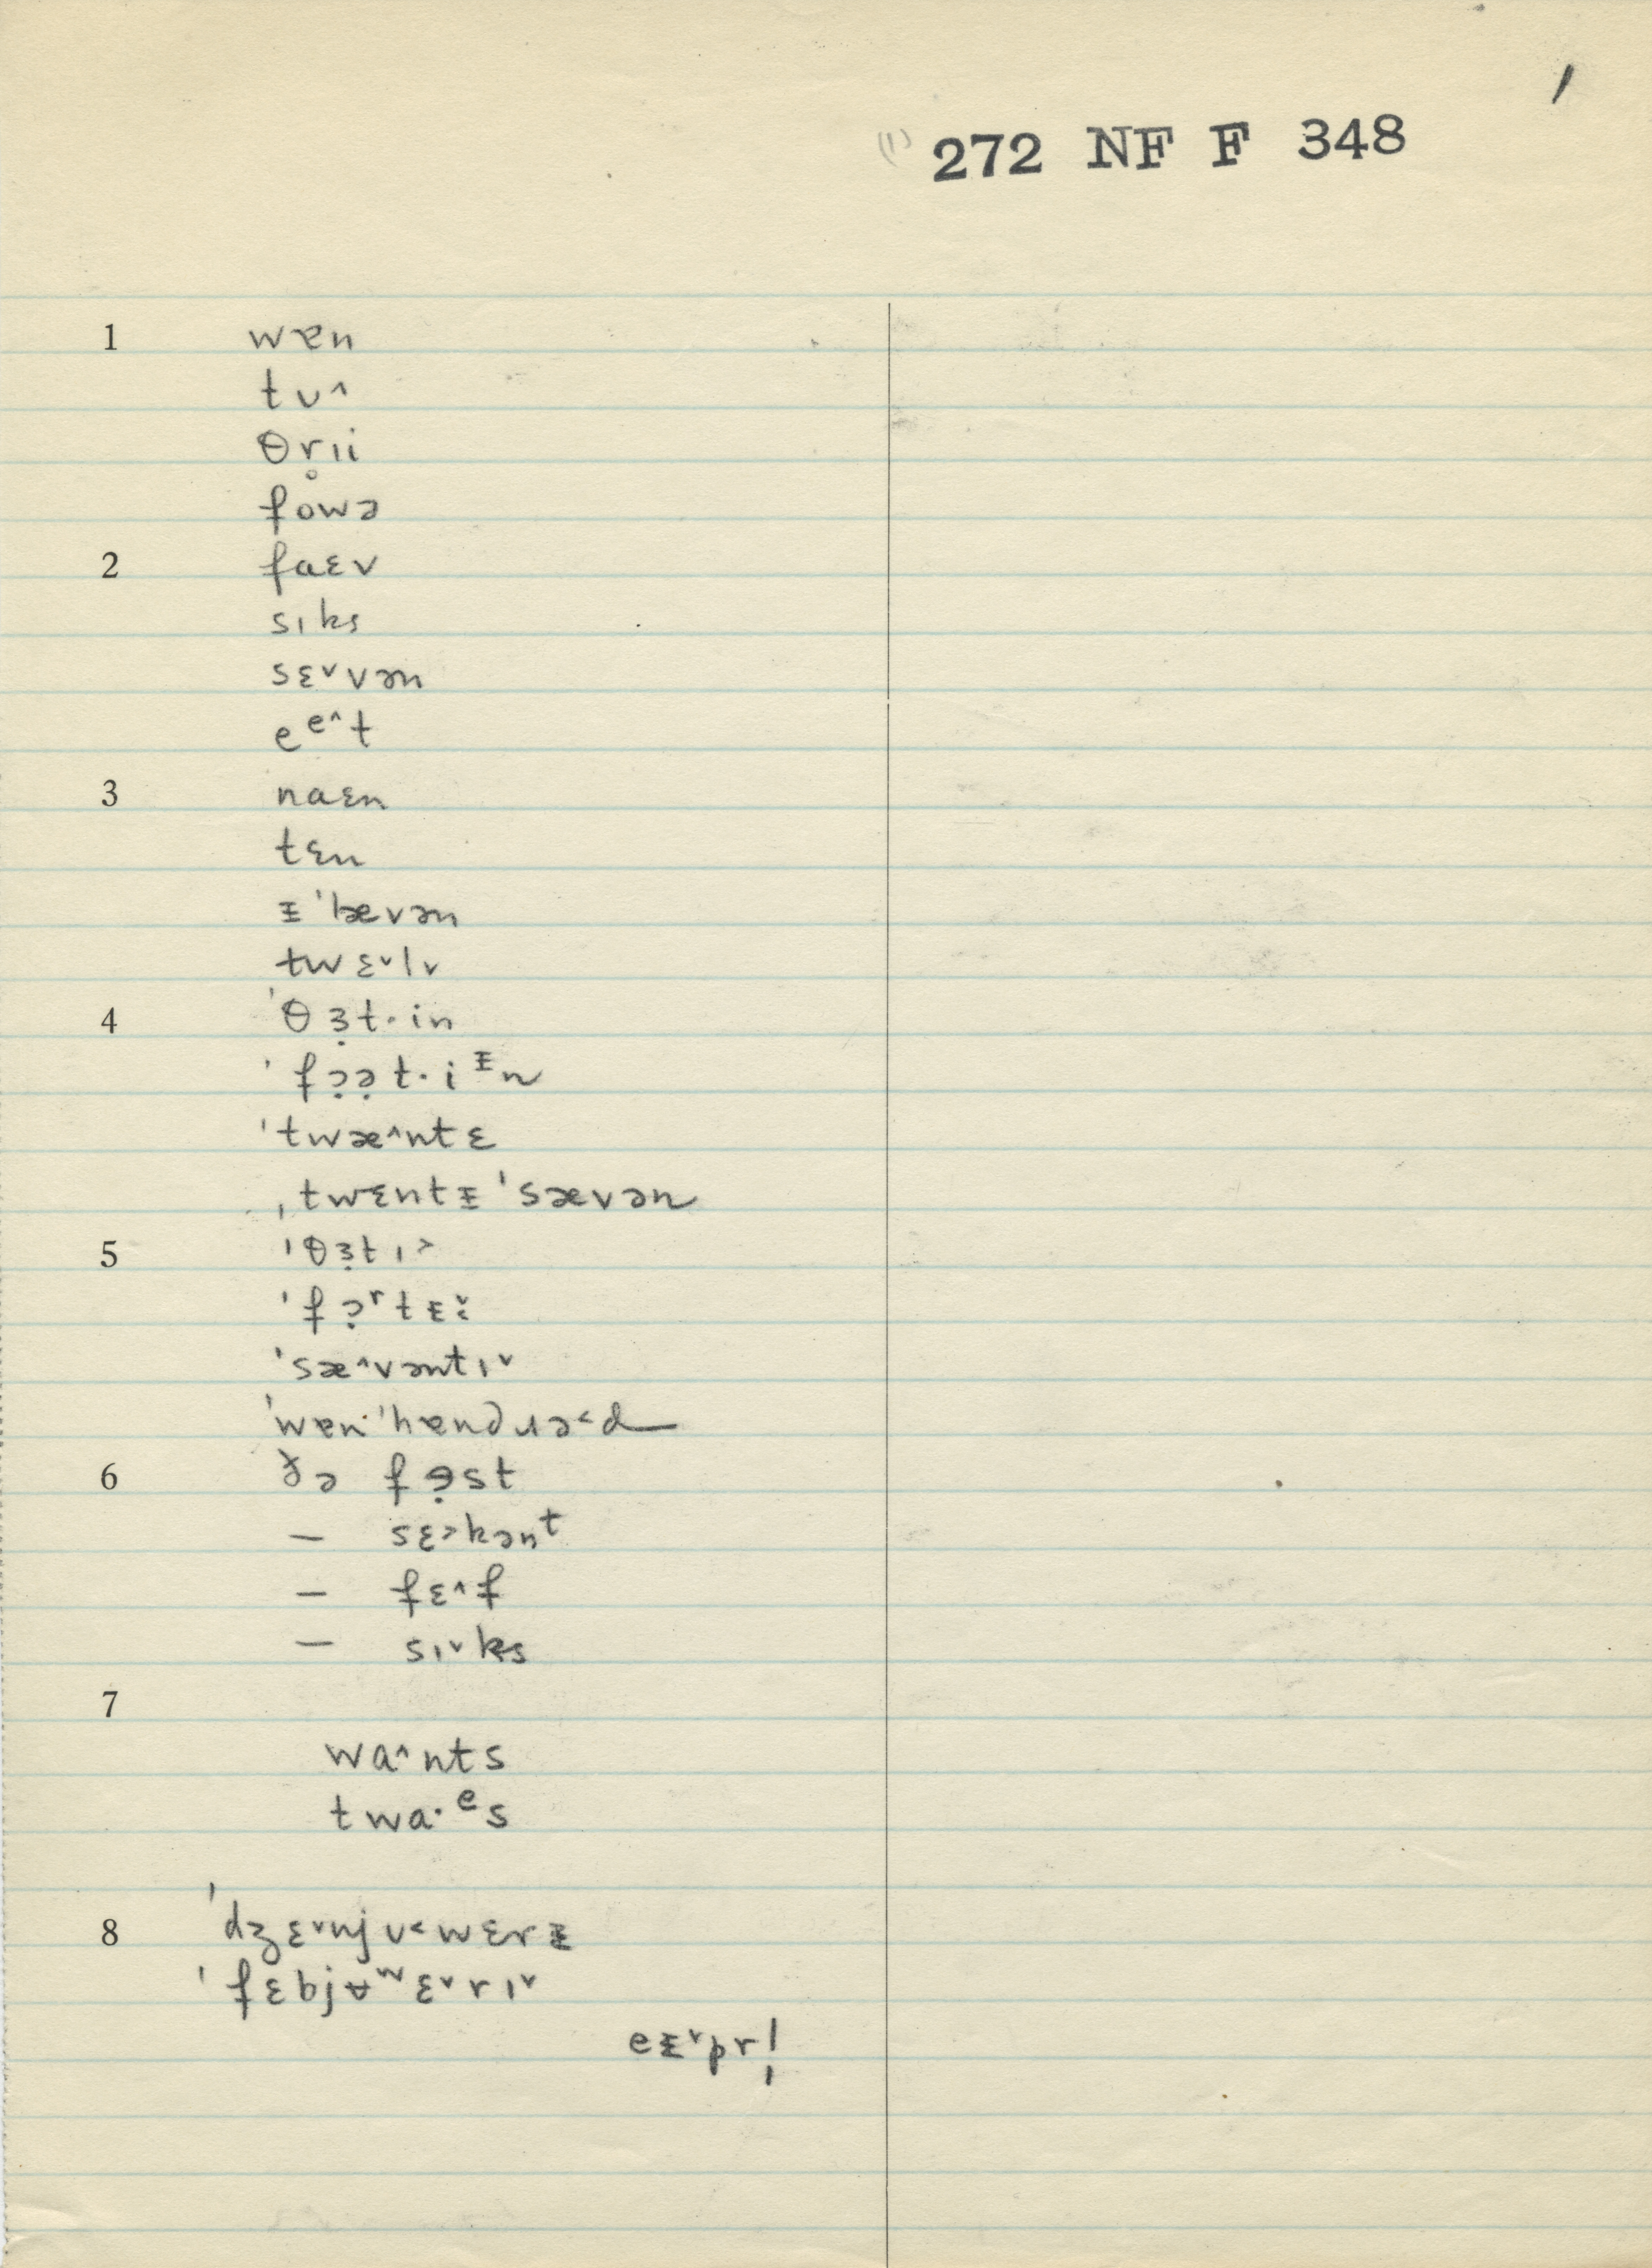 (1) 272 NF F 348 /
1 wɐn
tʊ^
θr̥ɪi
fowə
2 faɛv
sɪks
sɛ˅vən
eᵉ^t
3 naɛn
tɛn
ᵻ ˈlævən
twɛ˅lv
4 ˈθɜ̣t·in
ˈfɔ̣ə̣t·iᵻn
ˈtwæ^ntɛ
ˌtwɛntᵻ ˈsævən
5 ˈθɜ̣tɪ˃
ˈfɔ̣ʳtᵻ˅˂
ˈsæ^vəntɪ˅
ˈwɐn ˈhɐndɹə˂d
6 ðə fɘ̣st
— sɛ˃kənᵗ
— fɛ^f
— sɪ˅ks
7
wa^nts
twa·ᵉs
8 ˈdʒɛ˅njʊ˂wɛrᵻ
ˈfɛbjɵʷɛ˅rɪ˅
eᵻ˅pr|̩